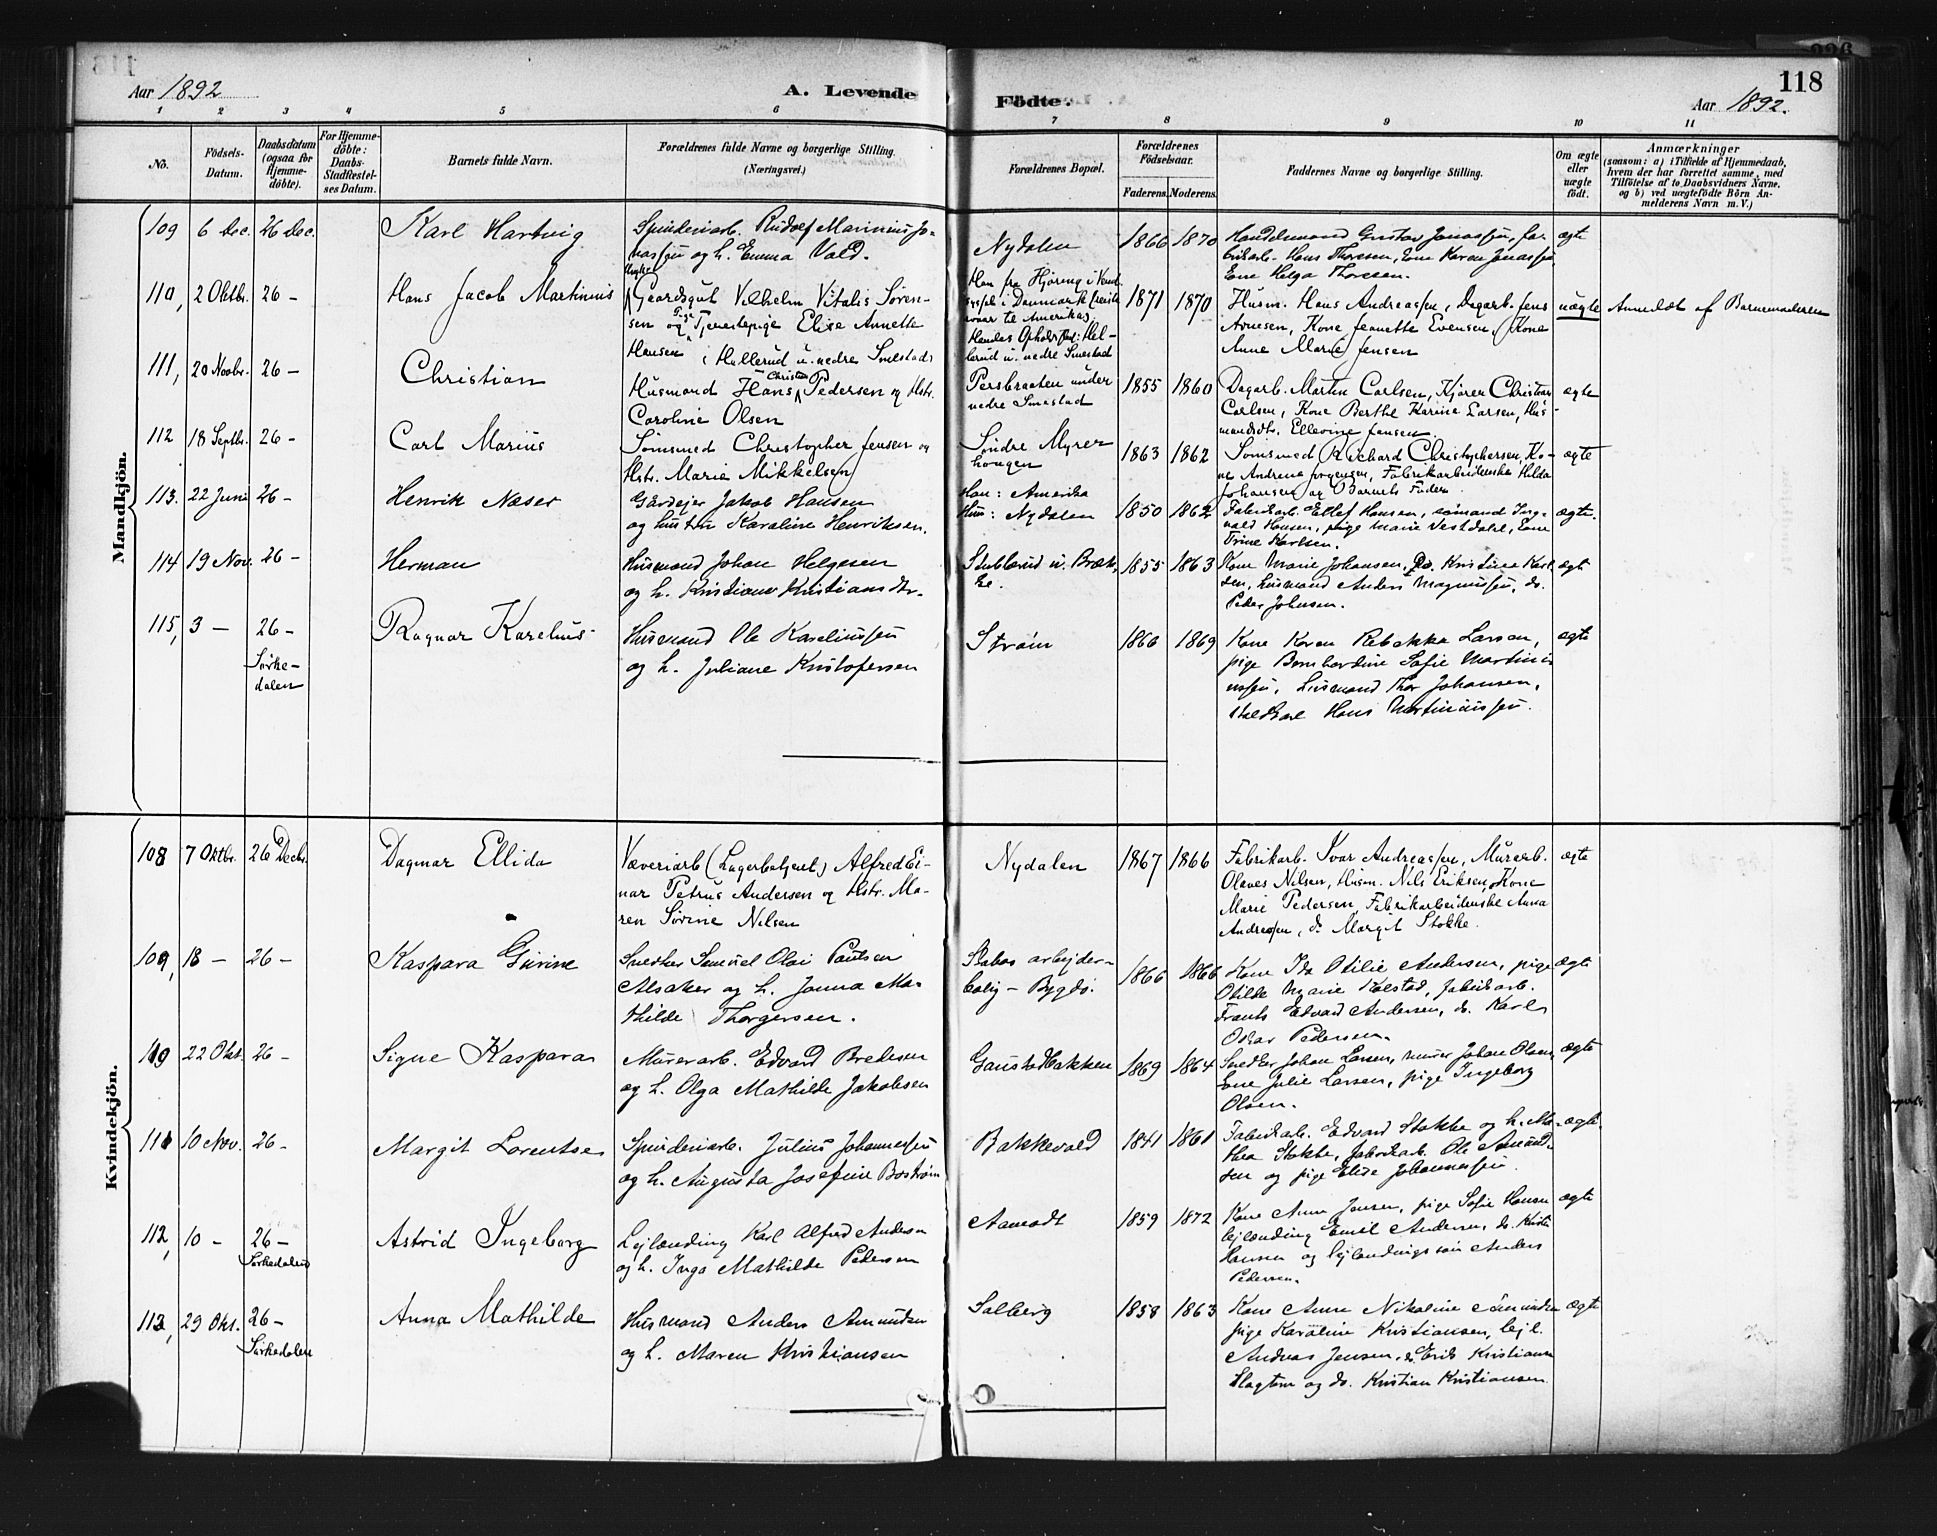 Aar 1892
A. Levende
Födte.
118
Aar 1892.
1 2 3 4 5 6 7 8 9 10 11
No.
Födsels-
Datum.
Daabsdatum
(ogsaa for
Hjemme-
döbte).
For Hjemme-
döbte:
Daabs-
Stadfæstel-
ses Datum.
Barnets fulde Navn.
Forældrenes fulde Navne og borgerlige Stilling.
(Næringsvei.)
Forældrenes Bopæl.
Forældrenes
Födselsaar.
Faderens. Moderens.
Faddernes Navne og borgerlige Stilling.
Om ægte
eller
uægte
født.
Anmærkninger
(saasom: a) i Tilfælde af Hjemmedaab,
hvem der har forrettet samme, med
Tilföielse af to Daabsvidners Navne,
og b) ved uægtefödte Börn An-
melderens Navn m. V.)
Mandkjön.
109 6 Dec. 26 Dec. Karl Hartvig
Spinderiarb. Rudolf Marinius Jo-
nassen og h. Emma Vald.
Nydalen 1866 1870
Handelsmand Gustav Jonassen, fa-
brikarb. Hans Thoresen, Ene Karen Jonassen
Ene Helga Thoresen.
ægte
110, 2 Oktbr. 26 - Hans Jacob Martinius
Ungkar
Geardsgut Vilhelm Vitalis Søren-
sen og Pige Tjenestepige Elise Annette
Hansen, Hallerud u. nedre Smestad
Han fra Hjøring i Vend-
syssel i Danmark (reist
svar til Amerika).
Hendes Opholdssted: Hal-
lerud u. nedre Smestad
1871 1870
Husm. Hans Andreassen, Dagarb. Jens
Arnesen, Kone Jeanette Evensen, Kone
Anne Marie Jensen
uægte
Anmeldt af Barnemoderen
111, 20 Novbr. 26 - Christian
Husmand Hans Christian Pedersen og Hstr.
Caroline Olsen
Persbraaten under
nedre Smestad
1855 1860
Dagarb. Martin Carlsen, Kjører Christian
Carlsen, Kone Berthe Karine Larsen, Hus-
mandsdtr. Ellevine Jansen.
ægte
112 18 Septbr. 26 - Carl Marius
Sømsmed Christopher Jensen og
Hstr. Marie Mikkelsen
Søndre Myrer
hougen
1863 1862
Sømsmed Richard Christophersen, Ko-
ne Andrine Jørgensen, Fabrikarbeiderske Hilda
Johansen og Barnets Fader.
ægte
113. 22 Juni 26 - Henrik Næser
Gårdejer Jakob Hansen
og hustru Karoline Henriksen.
Han: Amerika
Hun: Nydalen
1850 1862
Fabrikarb. Ellef Hansen, sømand Ing-
vald Hansen, pige Marie Vestdahl, Ene
Trine Karlsen.
ægte.
114 19 Nov. 26 - Herman
Husmand Johan Helgesen
og h. Kristiane Kristiansdtr.
Stubberud u. Bræk-
ke.
1855 1863
Kone Marie Johansen, Do. Kristine Karl-
sen, husmand Anders Magnussen, do.
Peder Johnsen.
ægte
115, 3 - 26 - Ragnar Karelius
Sørke-
dalen
Husmand Ole Kareliussen
og h. Juliane Kristofersen
Strøm 1866 1869
Kone Karen Rebekka Larsen,
pige Bernhardine Sofie Martini-
ussen, husmand Thor Johansen,
Hans Martiniussen.
ægte
Kvindekjön.
108 7 Oktbr. 26 Decbr. Dagmar Ellida
Væveriarb (Lagerbetjent) Alfred Ei-
nar Petrus Andersen og Hstr. Ma-
ren Sørine Nilsen
Nydalen 1867 1866
Fabrikarb. Ivar Andreassen, Murarb.
Olaves Nilsen, Husm. Nils Eriksen, Kone
Marie Pedersen, Fabrikarbeiderske Anna
Andreassen, do Margit Stokke.
ægte
109, 18 - 26 - Kaspara Gurine
Snedker Samuel Olai Paulsen
Alsaker og h. Janna Ma-
thilde Thorgersen.
Slabas arbejder-
bolig - Bygdø.
1866 1866
Kone Ida Otilie Andersen, pige
Otilde Marie Kolstad, fabrikarb.
Frants Edvard Andersen, do. Karl
Oskar Pedersen.
ægte
110 22 Okt. 26 - Signe Kaspara
Murerarb. Edvard Bredesen
og h. Olga Mathilde Jakobsen
Gaustadbakken 1869 1864
Snedker Johan Larsen, murer Johan Olsen,
Ene Julie Larsen, pige Ingeborg
Olsen.
ægte
111 10 Nov. 26 - Margit Lorentse
Spinderiarb. Julius Johannessen
og h. Augusta Josefine Boström
Bakkevold 1841 1861
Fabrikarb. Edvard Stokke og h. Ma-
thea Stokke, fabrikarb. Ole Amund-
sen og pige Elise Johannessen.
ægte
112, 10 - 26 - Astrid Ingeborg
Sørkedalen
Lejlænding Karl Alfred Andersen
og h. Inga Mathilde Pedersen
Aamodt 1859 1872
Kone Anne Jensen, pige Sofie Hansen
lejlænding Emil Andersen, do. Kristi
Hansen og lejlændingssøn Anders
Pedersen.
ægte
113, 29 Okt. 26 - Anna Mathilde
Sørkedalen
Husmand Anders Amundsen
og h. Maren Kristiansen
Solberg 1858 1863
Kone Anne Nikoline Amundsen
pige Karoline Kristiansen, lejl.
Andreas Jensen, do Erik Kristiansen
Slagtern og do. Kristian Kristiansen.
ægte